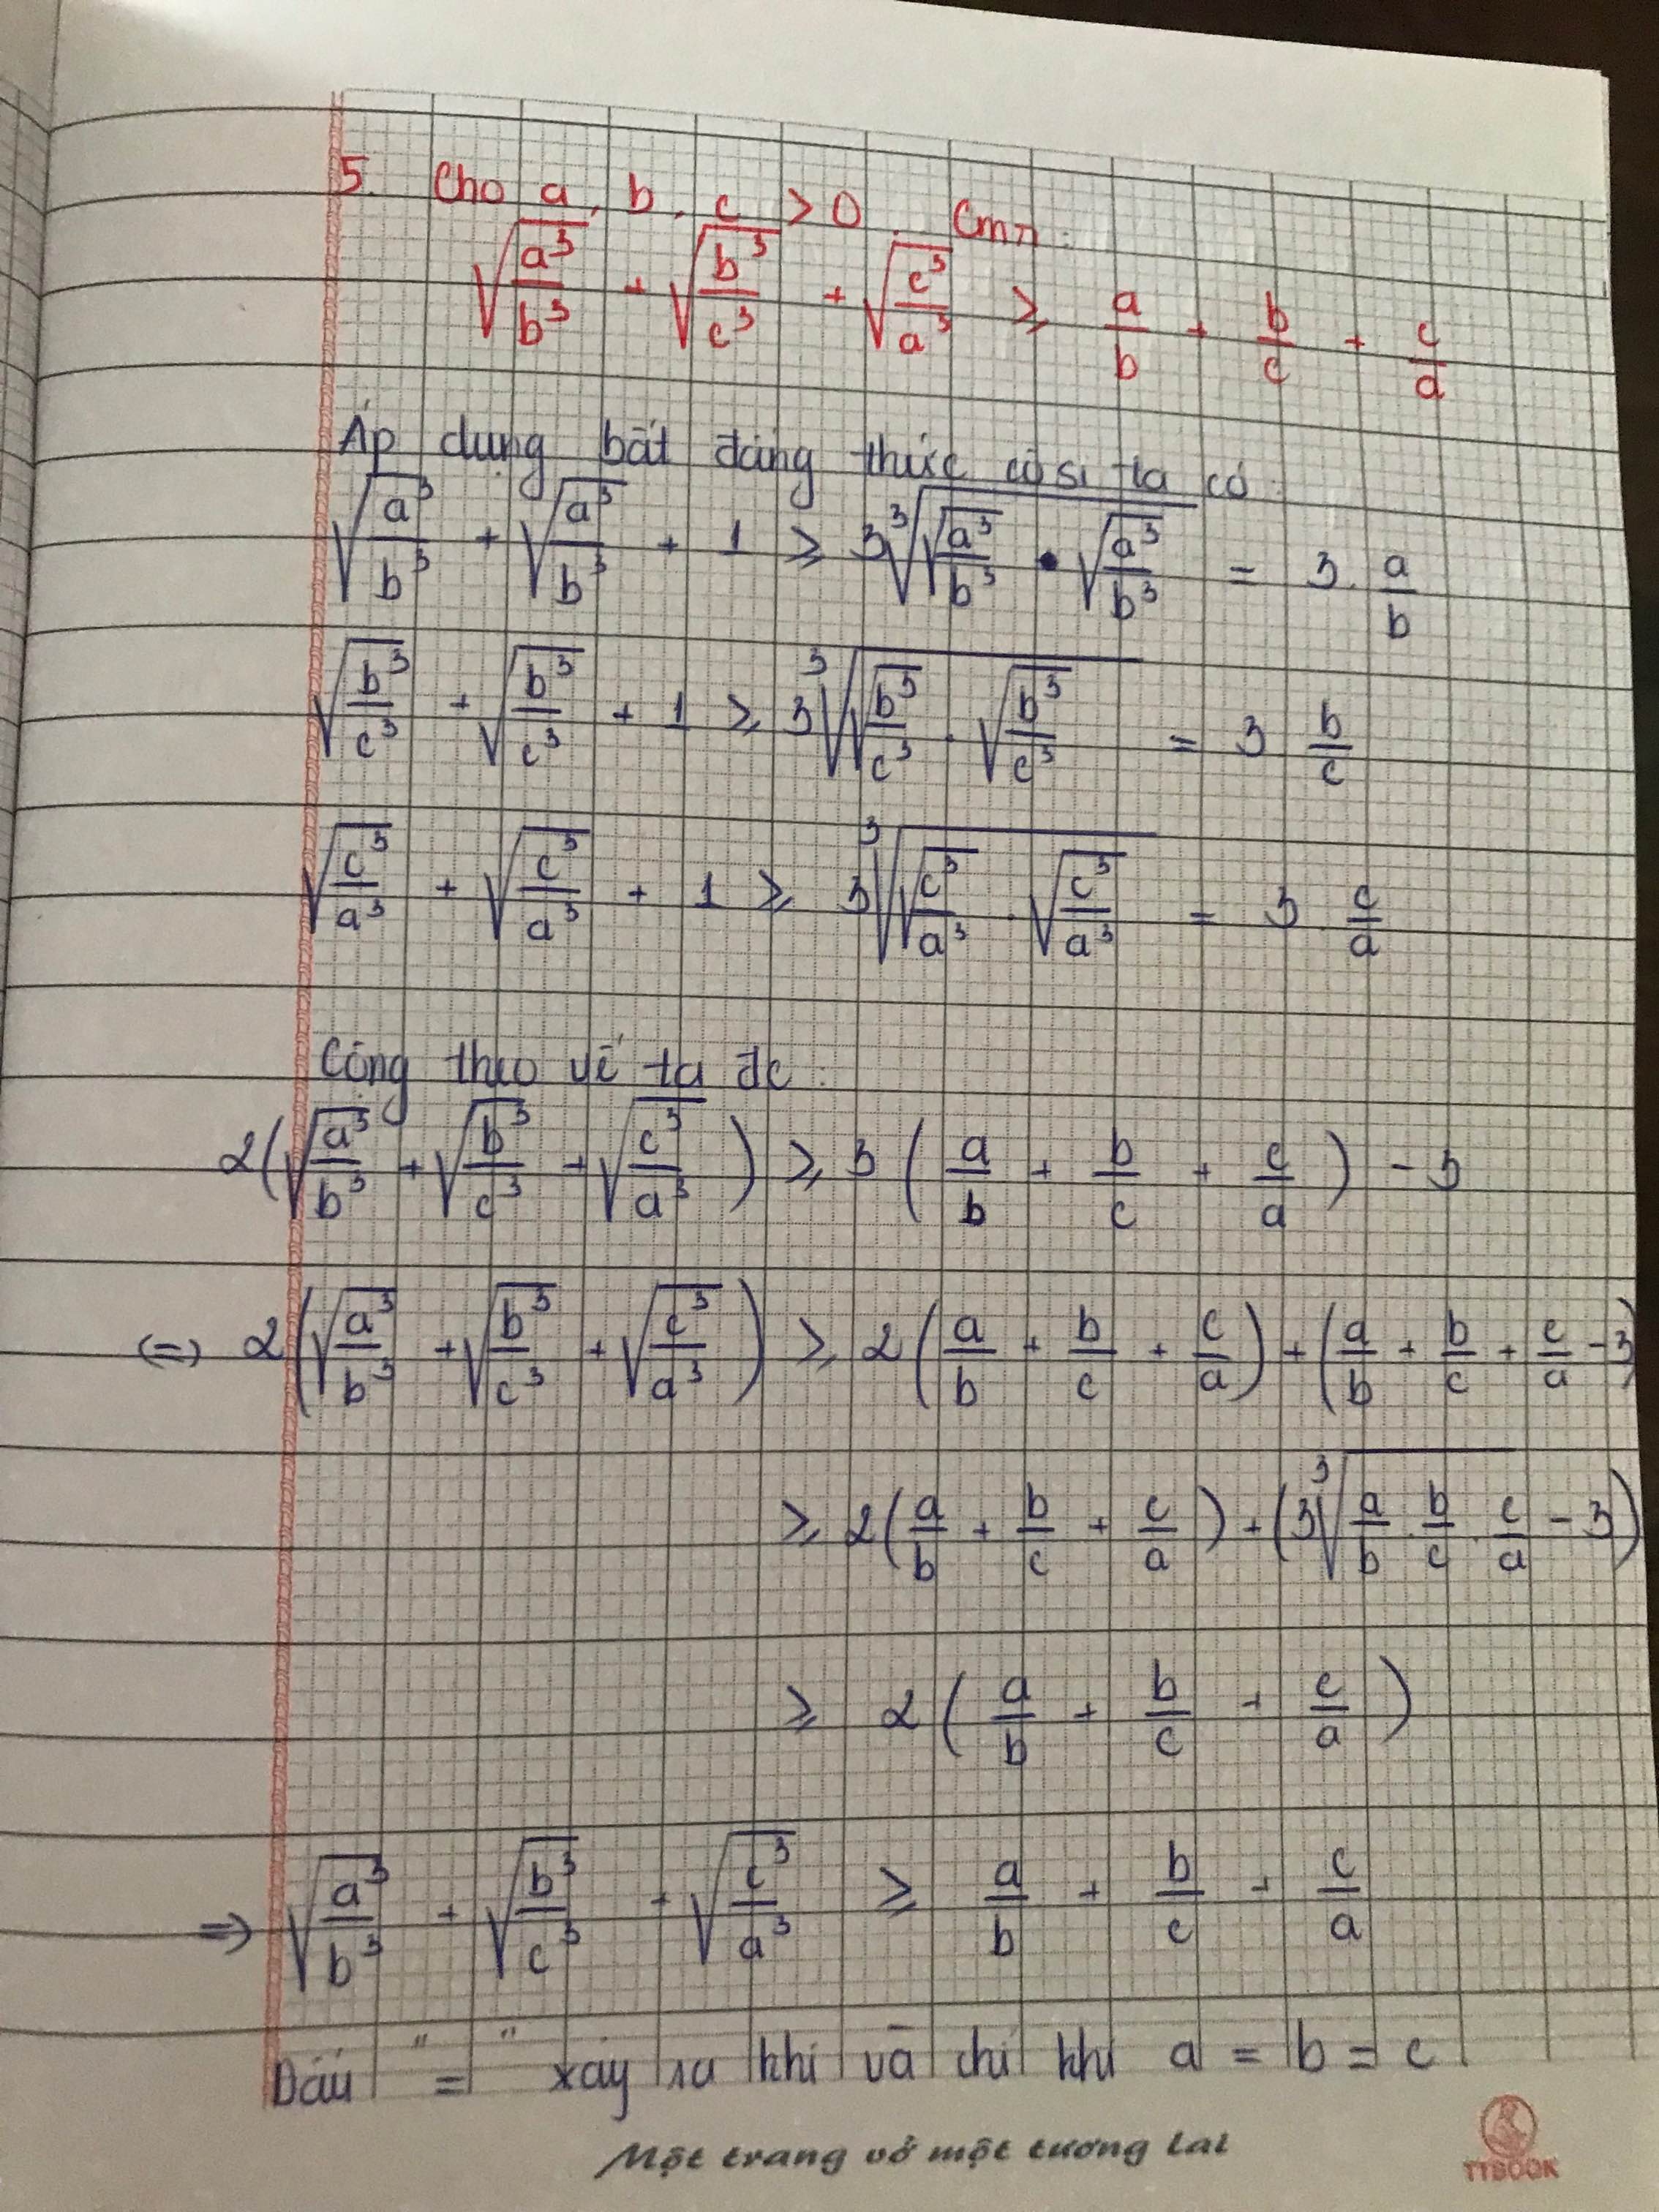 5. Cho a, b, c > 0. Cmr:
√(a³/b³) + √(b³/c³) + √(c³/a³) ≥ a/b + b/c + c/a
Áp dụng bất đẳng thức côsi ta có:
√(a³/b³) + √(a³/b³) + 1 ≥ 3∛(√(a³/b³) • √(a³/b³)) = 3. a/b
√(b³/c³) + √(b³/c³) + 1 ≥ 3∛(√(b³/c³) . √(b³/c³)) = 3 b/c
√(c³/a³) + √(c³/a³) + 1 ≥ 3∛(√(c³/a³) . √(c³/a³)) = 3 c/a
Cộng theo vế ta đc:
2(√(a³/b³) + √(b³/c³) + √(c³/a³)) ≥ 3(a/b + b/c + c/a) - 3
(=) 2(√(a³/b³) + √(b³/c³) + √(c³/a³)) ≥ 2(a/b + b/c + c/a) + (a/b + b/c + c/a - 3)
≥ 2(a/b + b/c + c/a) + (3∛(a/b . b/c . c/a) - 3)
≥ 2(a/b + b/c + c/a)
=) √(a³/b³) + √(b³/c³) + √(c³/a³) ≥ a/b + b/c + c/a
Dấu "=" xảy ra khi và chỉ khi a = b = c
Một trang vở một tương lai
TTBOOK